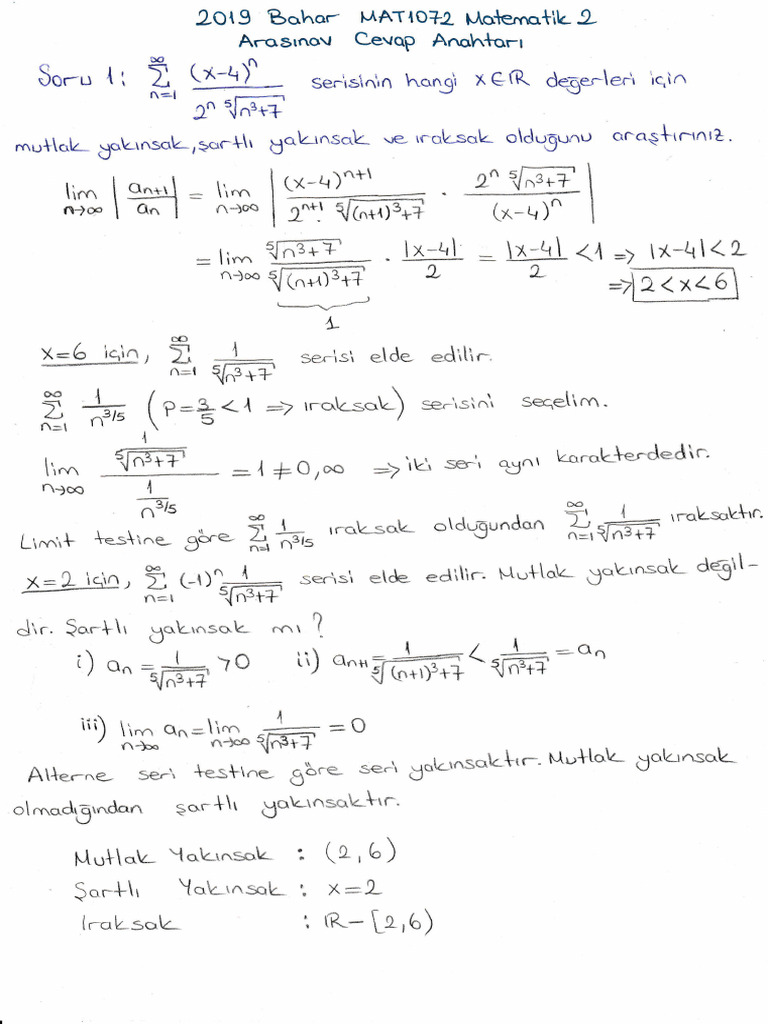 2019 Bahar MAT1072 Matematik 2
Arasınav Cevap Anahtarı
Soru 1: ∞∑n=1 (x-4)ⁿ / (2ⁿ ⁵√(n³+7)) serisinin hangi x∈ℝ değerleri için
mutlak yakınsak, şartlı yakınsak ve ıraksak olduğunu araştırınız.
lim n→∞ |aₙ₊₁ / aₙ| = lim n→∞ |(x-4)ⁿ⁺¹ / (2ⁿ⁺¹ · ⁵√((n+1)³+7)) · 2ⁿ ⁵√(n³+7) / (x-4)ⁿ|
= lim n→∞ ⁵√(n³+7) / ⁵√((n+1)³+7) · |x-4| / 2 = |x-4| / 2 < 1 => |x-4| < 2
=> 2 < x < 6
1
x=6 için, ∞∑n=1 1 / ⁵√(n³+7) serisi elde edilir.
∞∑n=1 1 / n^(3/5) (P = 3/5 < 1 => ıraksak) serisini seçelim.
lim n→∞ (1 / ⁵√(n³+7)) / (1 / n^(3/5)) = 1 ≠ 0, ∞ => iki seri aynı karakterdedir.
Limit testine göre ∞∑n=1 1 / n^(3/5) ıraksak olduğundan ∞∑n=1 1 / ⁵√(n³+7) ıraksaktır.
x=2 için, ∞∑n=1 (-1)ⁿ 1 / ⁵√(n³+7) serisi elde edilir. Mutlak yakınsak değil-
dir. Şartlı yakınsak mı?
i) aₙ = 1 / ⁵√(n³+7) > 0 ii) aₙ₊₁ = 1 / ⁵√((n+1)³+7) < 1 / ⁵√(n³+7) = aₙ
iii) lim n→∞ aₙ = lim n→∞ 1 / ⁵√(n³+7) = 0
Alterne seri testine göre seri yakınsaktır. Mutlak yakınsak
olmadığından şartlı yakınsaktır.
Mutlak Yakınsak : (2,6)
Şartlı Yakınsak : x=2
Iraksak : ℝ-[2,6)